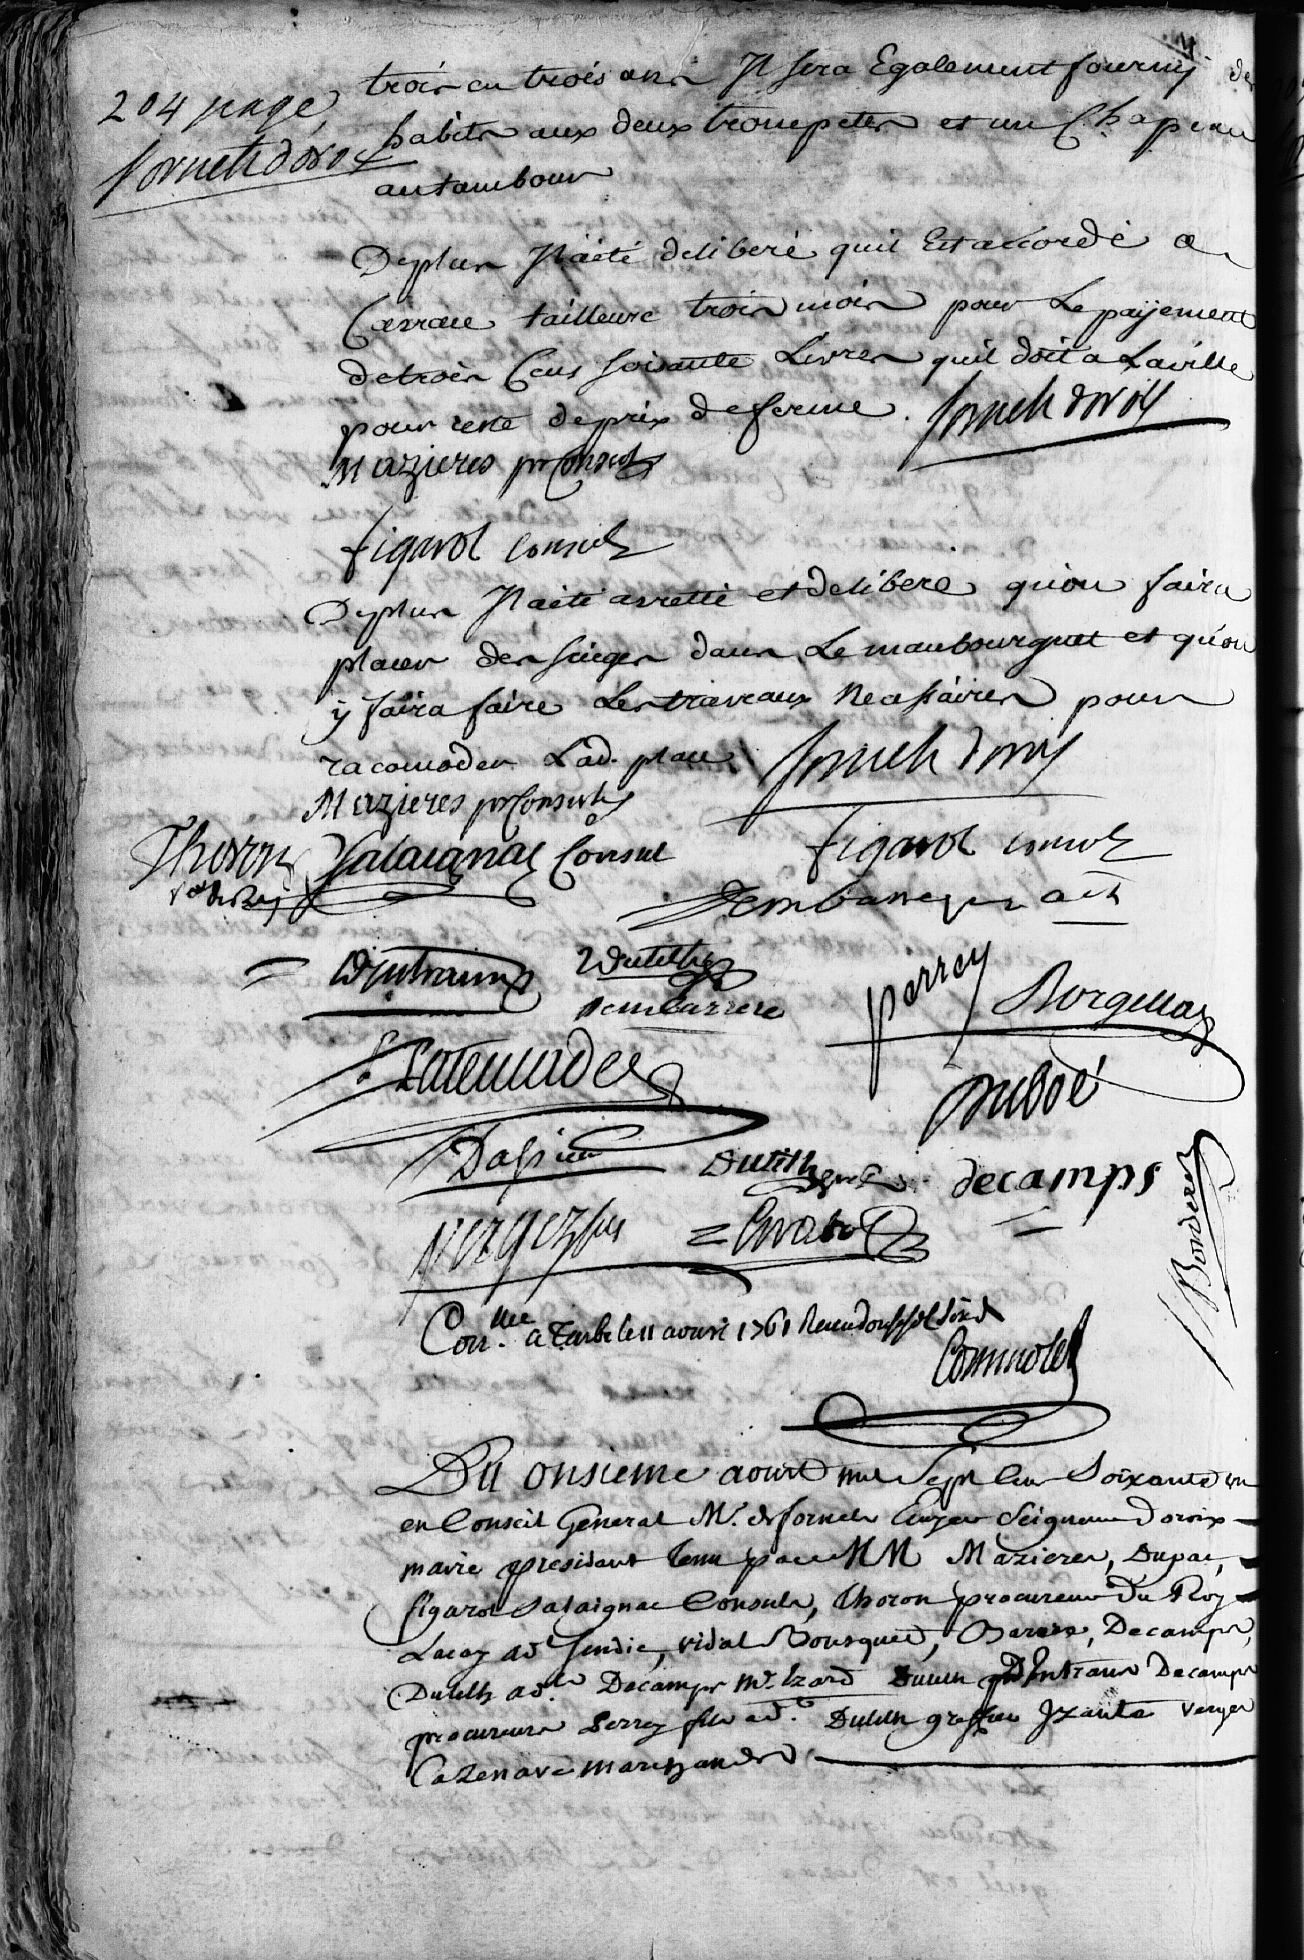 204 page
fornets doroix
trois en trois ans Il sera Egalement fourny des
habits aux deux trompetes et un Chapeau
au tambour
Deplus Il aété deliberé quil Est accordé a
tailleure trois mois pour Le payement
detrois Cens soixante Livres quil doit a Laville
pour reste deprix deferme. fornets doroix
Mazieres pr Consul
figarol consul
Deplus Il aété arretté et deliberé quon faira
placer des sieges dans Le maubourguet et quon
y faira faire Les travaux necessaires pour
racomoder Lad. place fornets doroix
Mazieres pr Consul
Thoron Salaignac Consul figarol consul
pr du Roy
Dintrans Dutilh
Dembarrere perrey Borgella
Duboé
Dassieu Dutilh decamps
Vergez fils
Borderes
Con.lle a Tarbe le 11 aoust 1761
Du onsieme aout mil Sept Cens Soixante un
en Conseil General M. de fornets Ecuyer Seigneur Doroix
maire president tenu par MM Mazieres, Dupac,
figarol Salaignac Consuls, Thoron procureur Du Roy
Lacay adt sindic, vidal Bousquet, Barere, Decamps,
Dutilh adt. Decamps md. Izard Dutilh Dintrans Decamps
procureurs Perrey fils adt. Dutilh greffier Vergez
Cazenave marchands